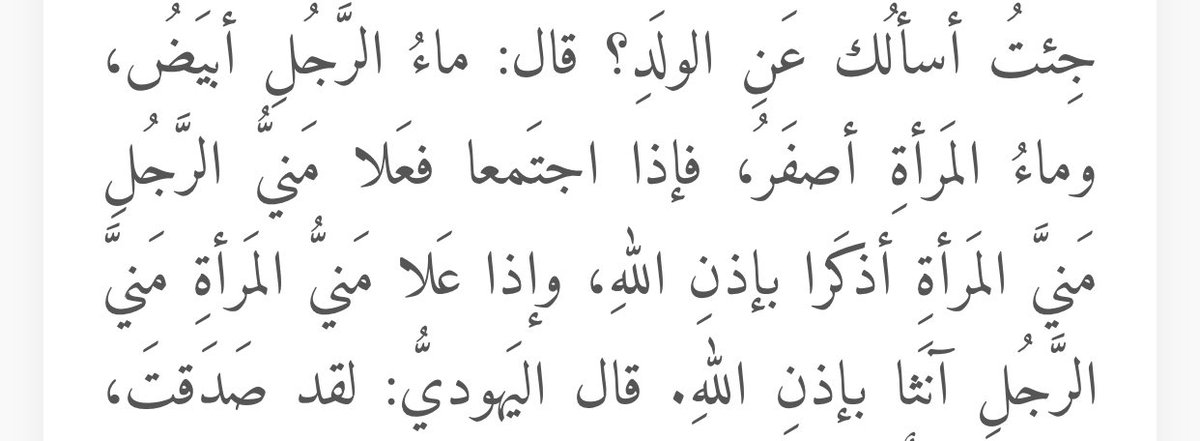 جِئتُ أسألُك عَنِ الولَدِ؟ قال: ماءُ الرَّجُلِ أبيَضُ،
وماءُ المَرأةِ أصفَرُ، فإذا اجتَمعا فعَلا مَنيُّ الرَّجُلِ
مَنيَّ المَرأةِ أذكَرا بإذنِ اللهِ، وإذا عَلا مَنيُّ المَرأةِ مَنيَّ
الرَّجُلِ آنَثا بإذنِ اللهِ. قال اليَهوديُّ: لقد صَدَقتَ،